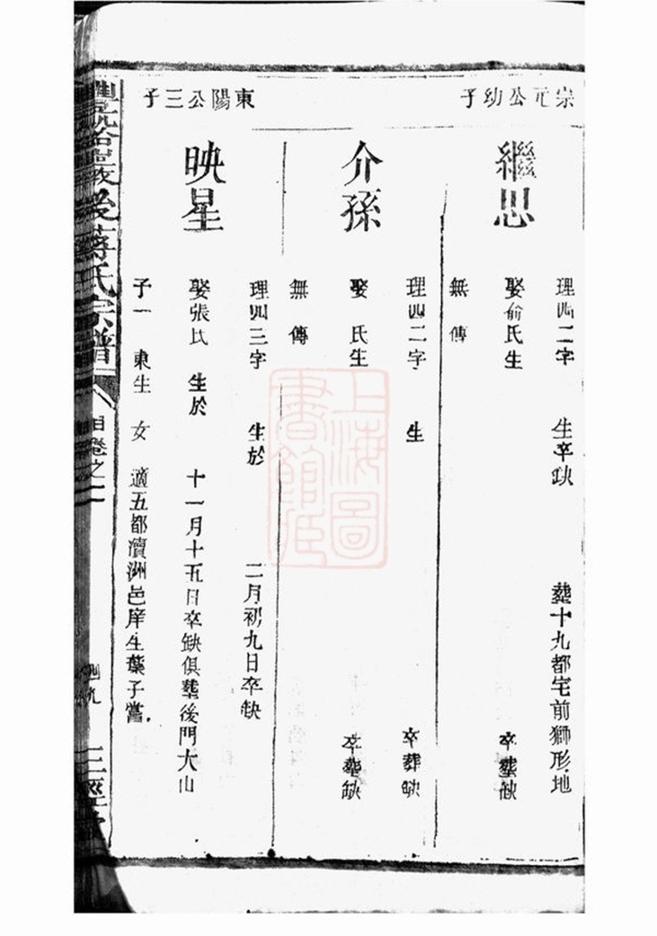 宗元公幼子
繼思
理四二字 生卒缺 葬十九都宅前獅形地
娶俞氏生 卒葬缺
無傳
介孫
理四二字 生 卒葬缺
娶 氏生 卒葬缺
無傳
東陽公三子
映星
理四三字 生於 二月初九日卒缺
娶張氏 生於 十一月十五日卒缺俱葬後門大山
子一 東生 女 適五都瀆洲邑庠生葉子嘗
蔣氏宗譜
卷之一
三徑堂
上海圖書館藏